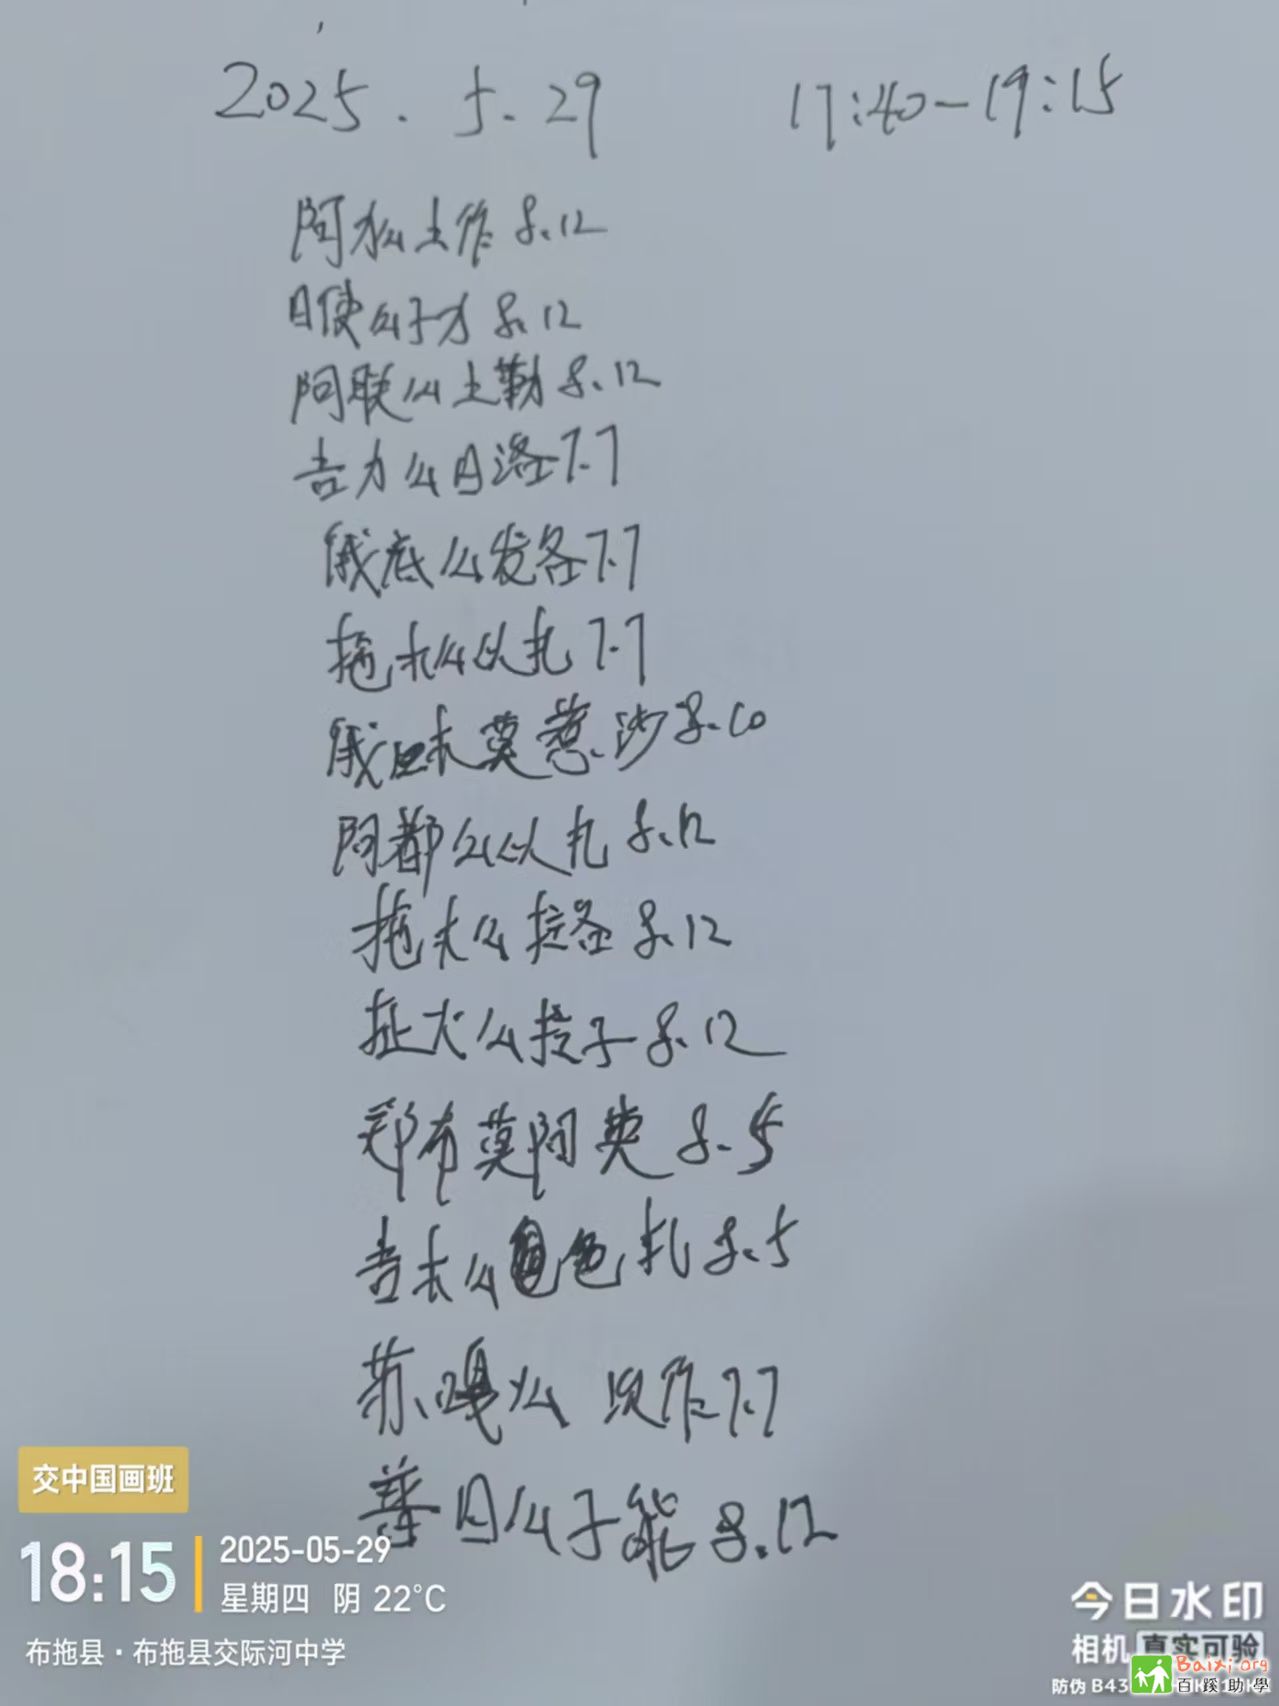 2025.5.29 17:40-19:15
阿木么土作 8.12
日使么子才 8.12
阿联么土勒 8.12
吉力么日洛 7.7
俄底么发各 7.7
拖木么以扎 7.7
俄木莫惹沙 8.10
阿都么以扎 8.12
拖木么拉各 8.12
么 子 8.12
郑布莫阿英 8.5
吉木么色扎 8.5
苏嘎么 作 7.7
日么子能 8.12
交中国画班
18:15
2025-05-29
星期四 阴 22°C
布拖县·布拖县交际河中学
今日水印
相机 真实可验
防伪 B43
Baixi.org
百蹊助學